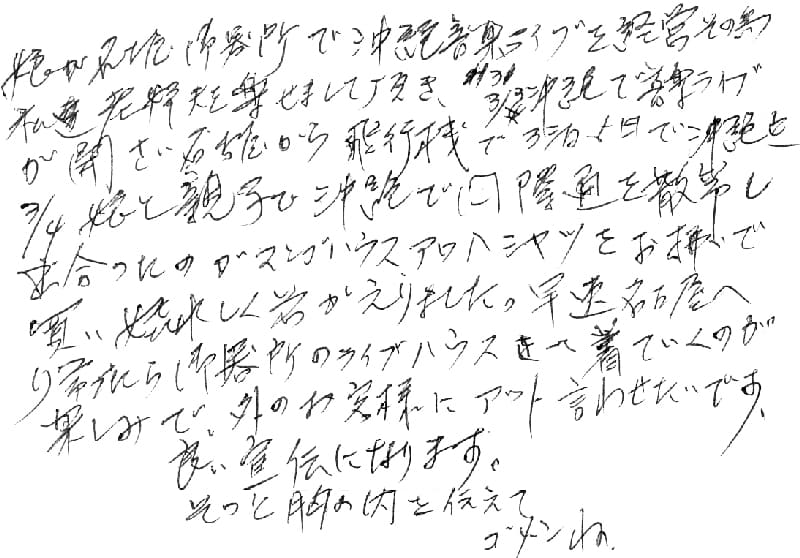 娘が名古屋御器所で沖縄音楽ライブを経営その為
私達老姉夫を乗せまして頂き、3/3沖縄で音楽ライブ
が開さい名古屋から飛行機で3泊4日で沖縄迄
3/4 娘と親子で沖縄で国際通を散策し
出合ったのがマンゴハウスアロハシャツをお揃いで
買い嬉しく若がえりました。早速名古屋へ
り帰たら御器所のライブハウスまで着ていくのが
楽しみで、外のお客様にアット言わせたいです。
良い宣伝になります。
そっと胸の内を伝えて
ゴメンね。